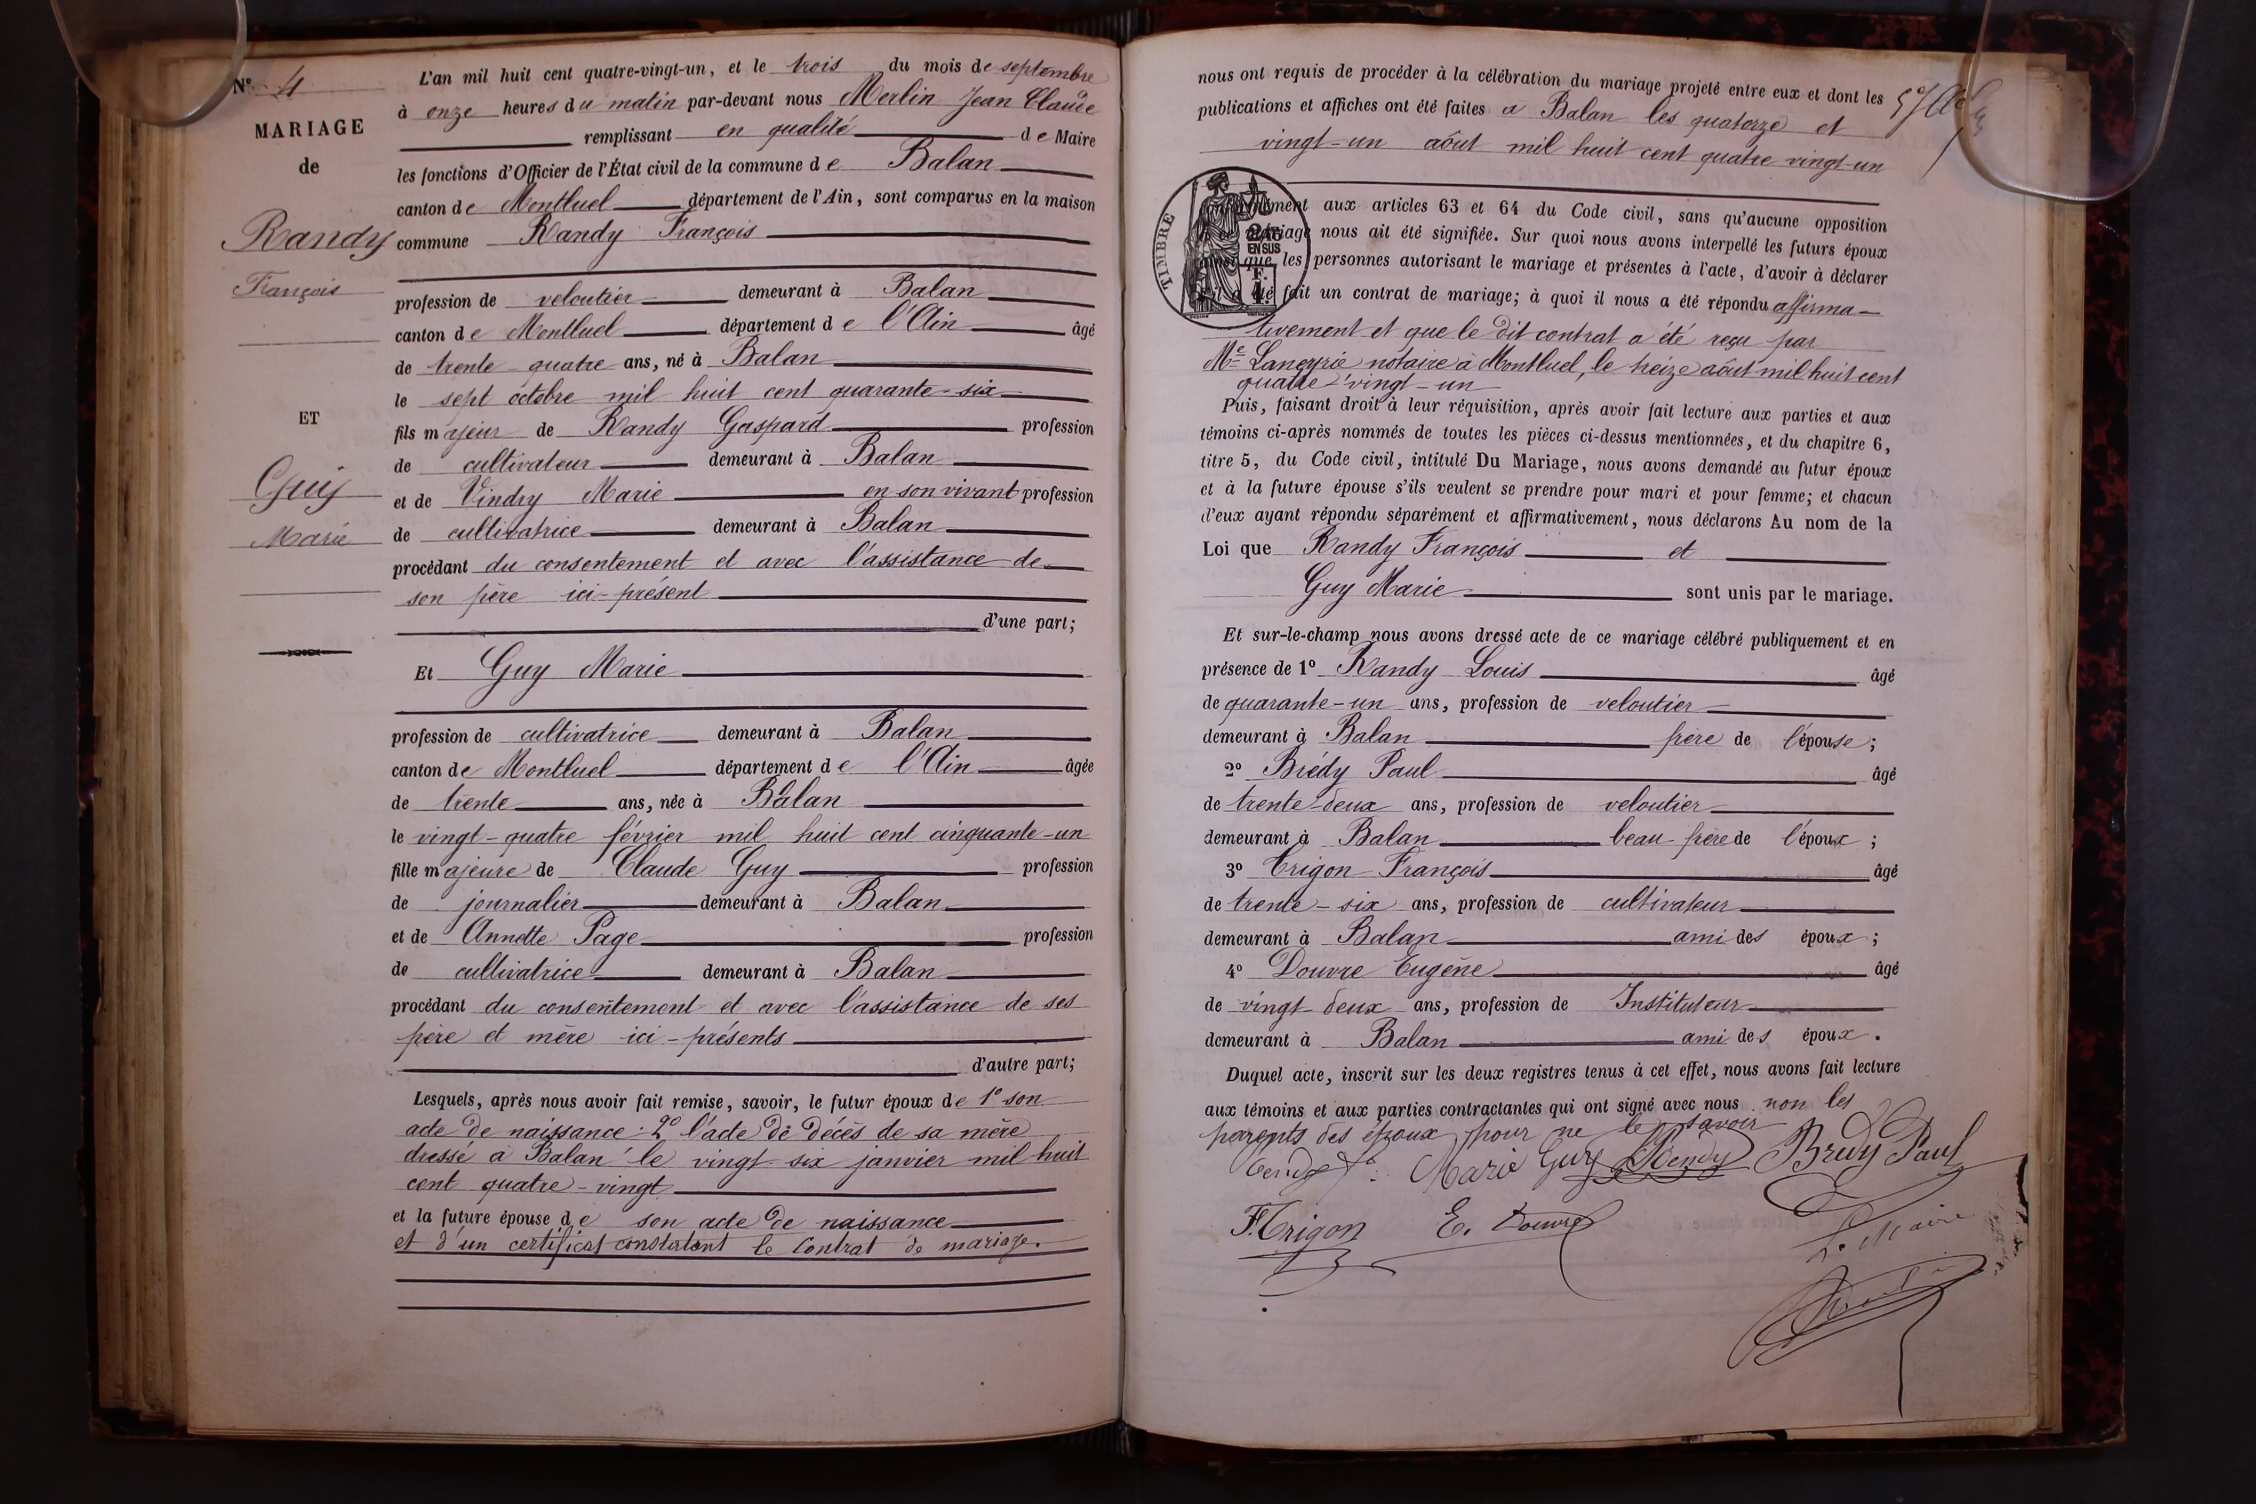 N° 4
MARIAGE
de
Randy
François
ET
Guy
Marie
L'an mil huit cent quatre-vingt-un, et le trois du mois de septembre
à onze heures du matin par-devant nous Merlin Jean Claude
remplissant en qualité de Maire
les fonctions d'Officier de l'État civil de la commune de Balan
canton de Montluel département de l'Ain, sont comparus en la maison
commune Randy François
profession de veloutier demeurant à Balan
canton de Montluel département de l'Ain âgé
de trente quatre ans, né à Balan
le sept octobre mil huit cent quarante-six
fils majeur de Randy Gaspard profession
de cultivateur demeurant à Balan
et de Vindry Marie en son vivant profession
de cultivatrice demeurant à Balan
procédant du consentement et avec l'assistance de
son père ici-présent
d'une part;
Et Guy Marie
profession de cultivatrice demeurant à Balan
canton de Montluel département de l'Ain âgée
de trente ans, née à Balan
le vingt-quatre février mil huit cent cinquante-un
fille majeure de Claude Guy profession
de journalier demeurant à Balan
et de Annette Page profession
de cultivatrice demeurant à Balan
procédant du consentement et avec l'assistance de ses
père et mère ici-présents
d'autre part;
Lesquels, après nous avoir fait remise, savoir, le futur époux de 1° son
acte de naissance. 2° l'acte de décès de sa mère
dressé à Balan le vingt-six janvier mil huit
cent quatre-vingt
et la future épouse de son acte de naissance
et d'un certificat constatant le Contrat de mariage.
nous ont requis de procéder à la célébration du mariage projeté entre eux et dont les
publications et affiches ont été faites à Balan les quatorze et
vingt-un août mil huit cent quatre vingt-un
TIMBRE
2/10
EN SUS
F.
1.
conformément aux articles 63 et 64 du Code civil, sans qu'aucune opposition
mariage nous ait été signifiée. Sur quoi nous avons interpellé les futurs époux
que les personnes autorisant le mariage et présentes à l'acte, d'avoir à déclarer
été fait un contrat de mariage; à quoi il nous a été répondu affirma-
tivement et que le dit contrat a été reçu par
Me Laneyrie notaire à Montluel, le treize août mil huit cent
quatre-vingt-un
Puis, faisant droit à leur réquisition, après avoir fait lecture aux parties et aux
témoins ci-après nommés de toutes les pièces ci-dessus mentionnées, et du chapitre 6,
titre 5, du Code civil, intitulé Du Mariage, nous avons demandé au futur époux
et à la future épouse s'ils veulent se prendre pour mari et pour femme; et chacun
d'eux ayant répondu séparément et affirmativement, nous déclarons Au nom de la
Loi que Randy François et
Guy Marie sont unis par le mariage.
Et sur-le-champ nous avons dressé acte de ce mariage célébré publiquement et en
présence de 1° Randy Louis âgé
de quarante-un ans, profession de veloutier
demeurant à Balan frère de l'épouse;
2° Brédy Paul âgé
de trente-deux ans, profession de veloutier
demeurant à Balan beau-frère de l'époux;
3° Trigon François âgé
de trente-six ans, profession de cultivateur
demeurant à Balan ami des époux;
4° Douvre Eugène âgé
de vingt-deux ans, profession de Instituteur
demeurant à Balan ami des époux.
Duquel acte, inscrit sur les deux registres tenus à cet effet, nous avons fait lecture
aux témoins et aux parties contractantes qui ont signé avec nous non les
parents des époux pour ne le savoir
Marie Guy Rendy Bredy Paul
F. Trigon E. Douvre
Le Maire